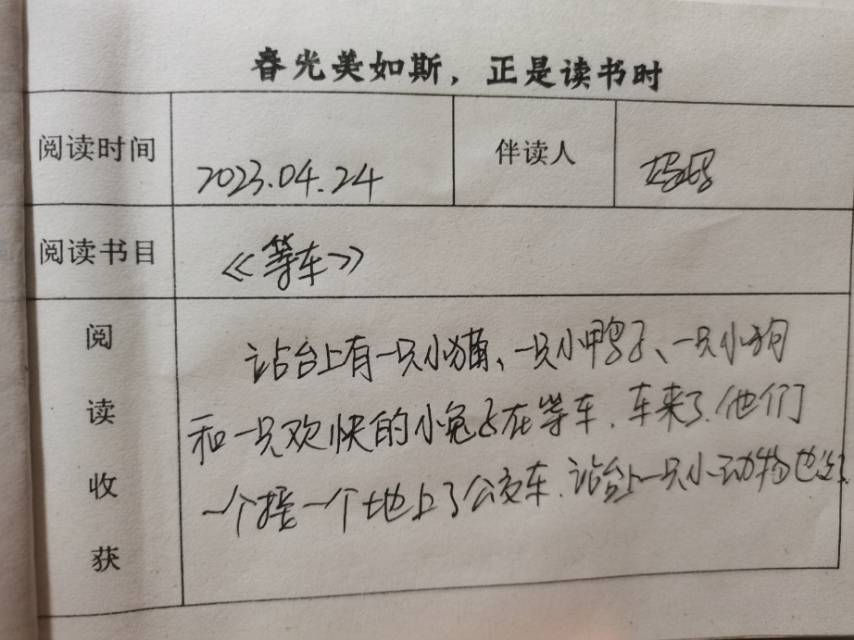 春光美如斯，正是读书时
阅读时间 2023.04.24 伴读人 妈妈
阅读书目 《等车》
阅读收获
站台上有一只小猫、一只小鸭子、一只小狗
和一只欢快的小兔子在等车.车来了.他们
一个接一个地上了公交车.站台上一只小动物也没了